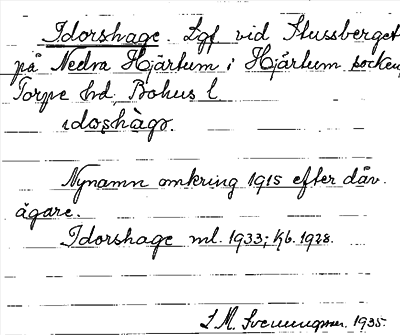 Idorshage. Lgf vid Slussberget
på Nedra Hjärtum i Hjärtum socken,
Torpe hd, Bohus l.
ɪdoʂhàgɔ.
Nynamn omkring 1915 efter dåv.
ägare.
Idorshage ml. 1933; Kb. 1928.
S. M. Svenungsson. 1935.